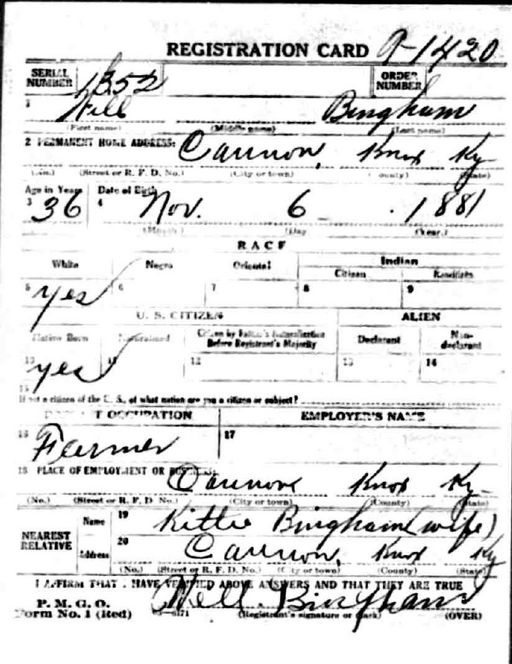 REGISTRATION CARD 9-1420
SERIAL NUMBER 1352 ORDER NUMBER
1 Will Bingham
(First name) (Middle name) (Last name)
2 PERMANENT HOME ADDRESS: Cannon, Knox Ky
(No.) (Street or R. F. D. No.) (City or town) (County) (State)
Age in Years Date of Birth
3 36 4 Nov. 6 1881
(Month) (Day) (Year.)
RACE
White Negro Oriental Indian
Citizen Noncitizen
5 yes 6 7 8 9
U. S. CITIZEN ALIEN
Native Born Naturalized Citizen by Father's Naturalization Before Registrant's Majority Declarant Non-declarant
10 yes 11 12 13 14
15
If not a citizen of the U. S., of what nation are you a citizen or subject?
PRESENT OCCUPATION EMPLOYER'S NAME
16 Farmer 17
18 PLACE OF EMPLOYMENT OR BUSINESS: Cannon Knox Ky
(No.) (Street or R. F. D. No.) (City or town) (County) (State)
NEAREST RELATIVE Name 19 Kittie Bingham (wife)
Address 20 Cannon, Knox Ky
(No.) (Street or R. F. D. No.) (City or town) (County) (State)
I AFFIRM THAT I HAVE VERIFIED ABOVE ANSWERS AND THAT THEY ARE TRUE
P. M. G. O.
Form No. 1 (Red) Will Bingham
(Registrant's signature or mark) (OVER)